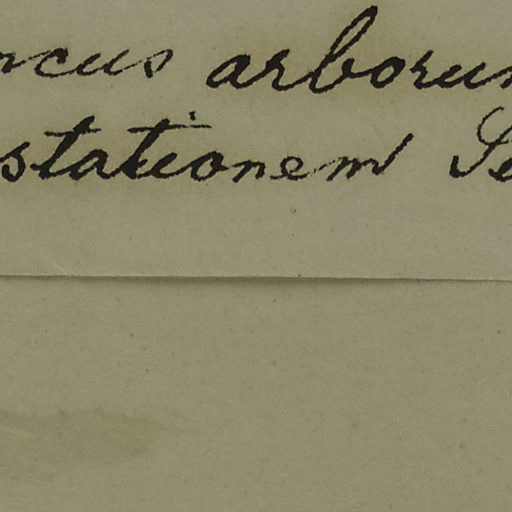 ncus arborum
stationem Se